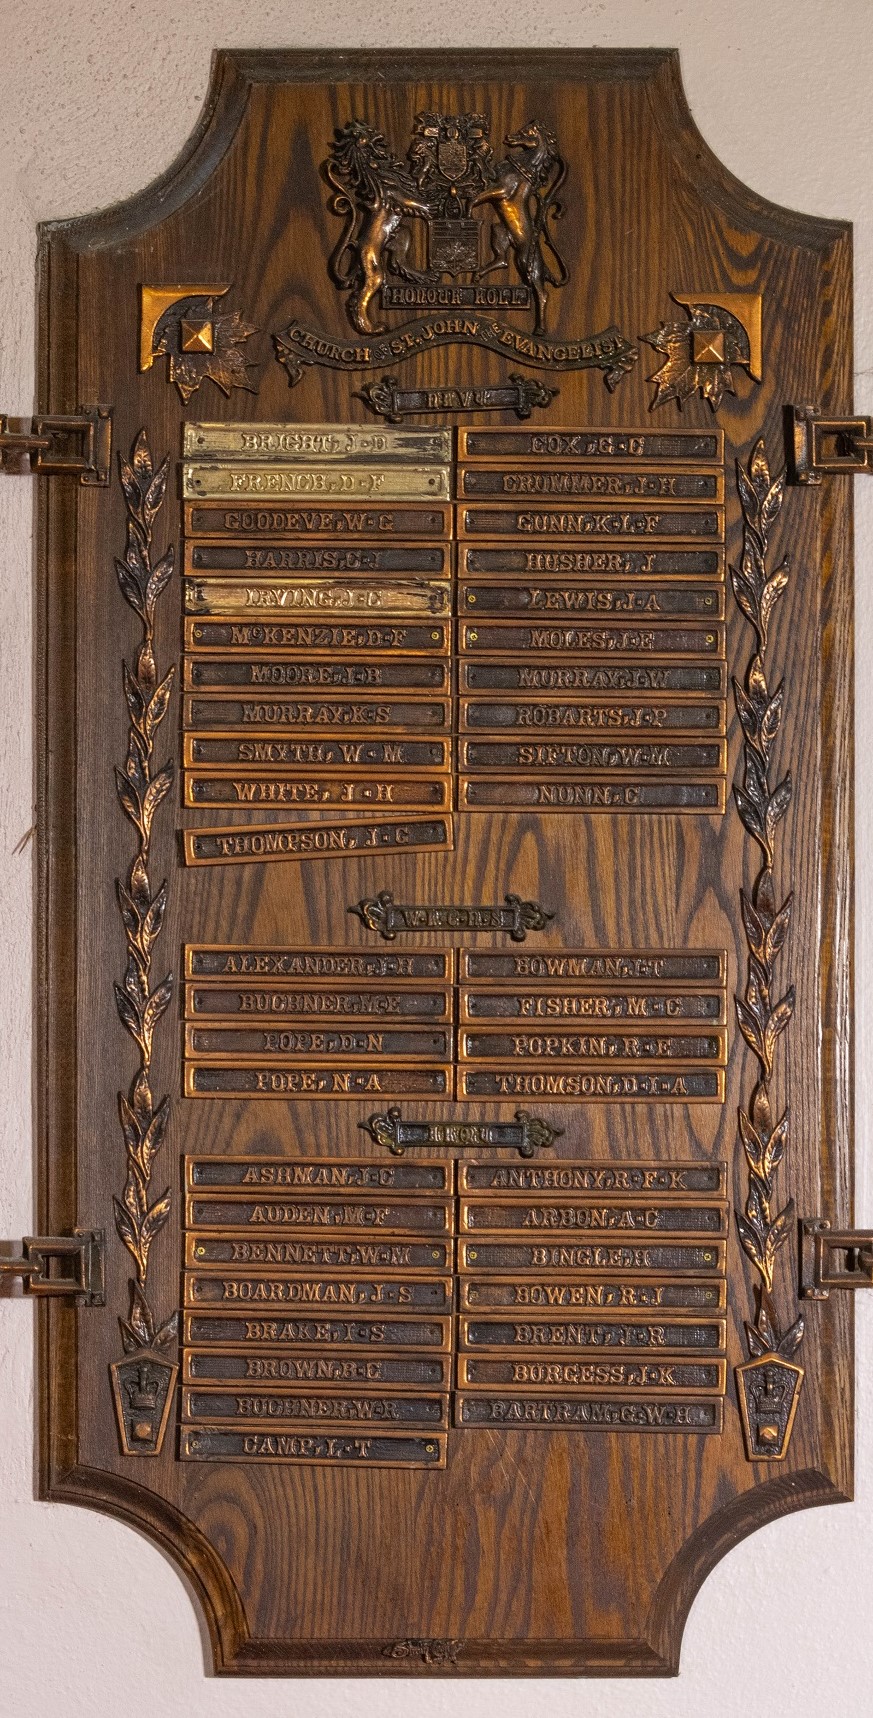 HONOUR ROLL
CHURCH OF ST. JOHN THE EVANGELIST
NAVY
BRIGHT, J-D COX, G-C
FRENCH, D-F CRUMMER, J-H
GOODEVE, W-G GUNN, K-L-F
HARRIS, C-J HUSHER, J
IRVING, J-C LEWIS, J-A
McKENZIE, D-F MOLES, J-E
MOORE, J-B MURRAY, J-W
MURRAY, K-S ROBARTS, J-P
SMYTH, W-M SIFTON, W-M
WHITE, J-H NUNN, C
THOMPSON, J-G
W-R-C-N-S
ALEXANDER, J-H BOWMAN, J-T
BUCHNER, M-E FISHER, M-C
POPE, D-N POPKIN, R-E
POPE, N-A THOMSON, D-I-A
ARMY
ASHMAN, J-C ANTHONY, R-F-K
AUDEN, M-F ARBON, A-C
BENNETT, W-M BINGLE, H
BOARDMAN, J-S BOWEN, R-J
BRAKE, I-S BRENT, J-R
BROWN, B-G BURGESS, J-K
BUCHNER, W-R BARTRAM, G-W-H
CAMP, L-T